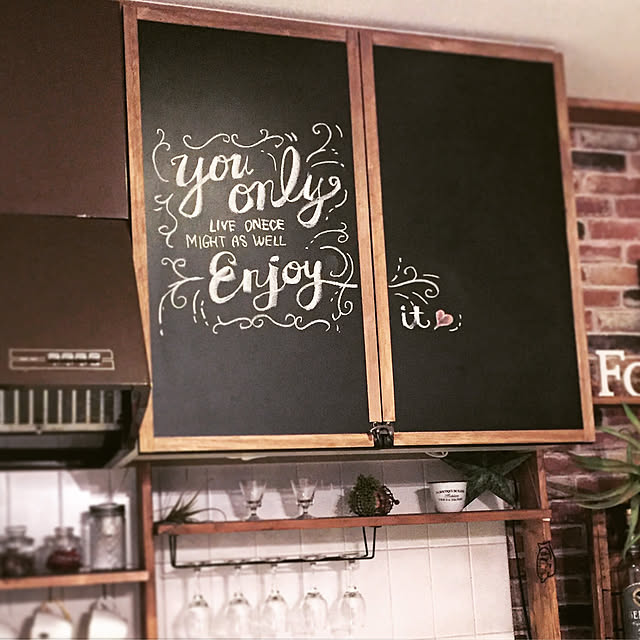 you
only
LIVE ONECE
MIGHT AS WELL
Enjoy
it
Fo